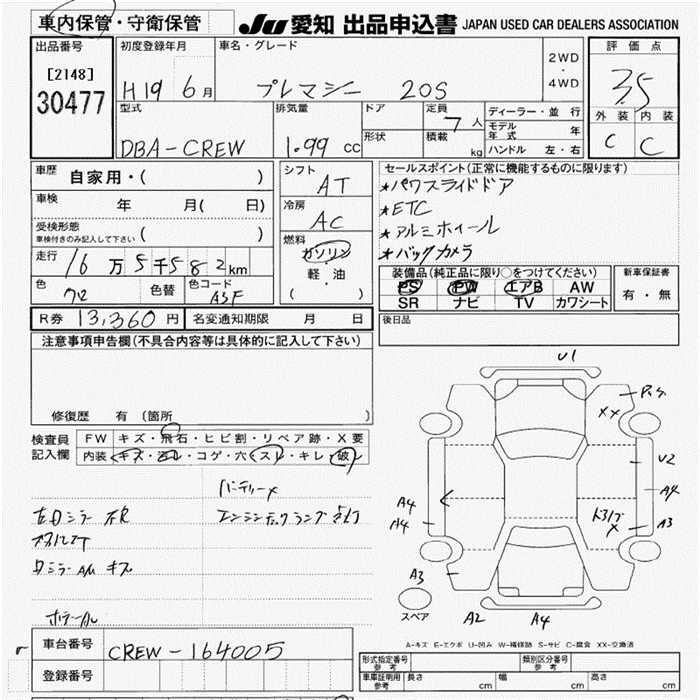 車内保管・守衛保管
JU 愛知 出品申込書 JAPAN USED CAR DEALERS ASSOCIATION
出品番号
[2148]
30477
初度登録年月
H19 6月
車名・グレード
プレマシー 20S
2WD
・
4WD
評価点
3.5
外装 内装
C C
型式
DBA-CREW
排気量
1.99 cc
ドア
形状
定員
7人
積載
kg
ディーラー・並行
モデル年式 年
ハンドル 左・右
車歴 自家用・( )
車検 年 月( 日)
受検形態
車検付きのみ記入して下さい ( )
走行 16万5千582km
色
色替
色コード
A3F
シフト
AT
冷房
AC
燃料
ガソリン
軽・油
( )
セールスポイント(正常に機能するものに限ります)
★パワスライドドア
★ETC
★アルミホイール
★バックカメラ
装備品(純正品に限り○をつけてください)
PS PW エアB AW
SR ナビ TV カワシート
新車保証書
有・無
R券 13,360円 名変通知期限 月 日
後日品
注意事項申告欄(不具合内容等は具体的に記入して下さい)
修復歴 有(箇所 )
検査員記入欄
FW キズ・飛石・ヒビ割・リペア跡・X要
内装 キズ・コゲ・穴・スレ・キレ・破レ
バッテリー×
エンジンチェックランプ
キズ
U1
XX
U2
A4
A3
A4
A4
A3
A2
A4
スペア
A-キズ E-エクボ U-凹み W-補修跡 S-サビ C-腐食 XX-交換済
車台番号 CREW-164005
登録番号
形式指定番号 参考
類別区分番号 参考
車庫証明用 参考 長さ cm 幅 cm 高さ cm